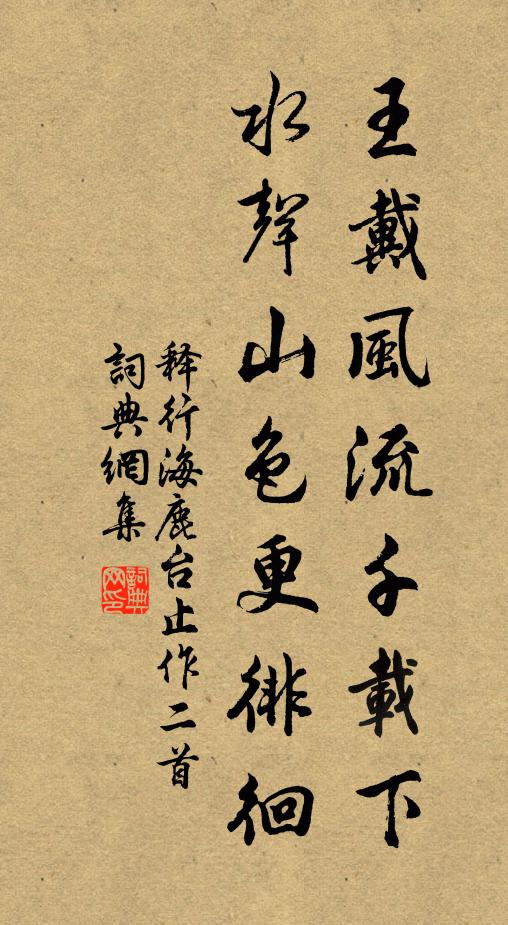 王戴風流千載下
水聲山色更徘徊
释行海鹿台止作二首
詞典網集
詞典
网印